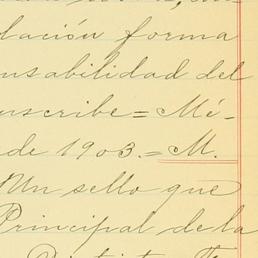 lación forma
nsabilidad del
uscribe = Mé-
de 1903. = M.
Un sello que
Principal de la